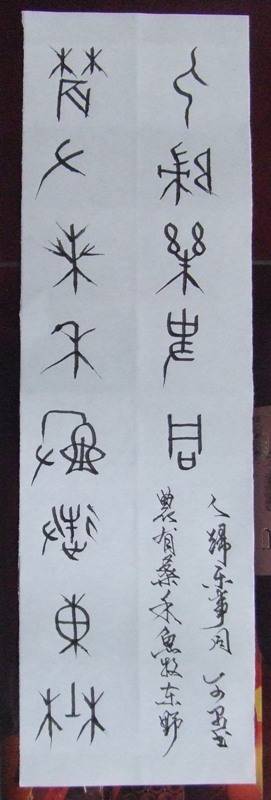 人歸樂事同
農又桑禾漁牧東埜
人歸乐事同
農有桑禾魚牧东野